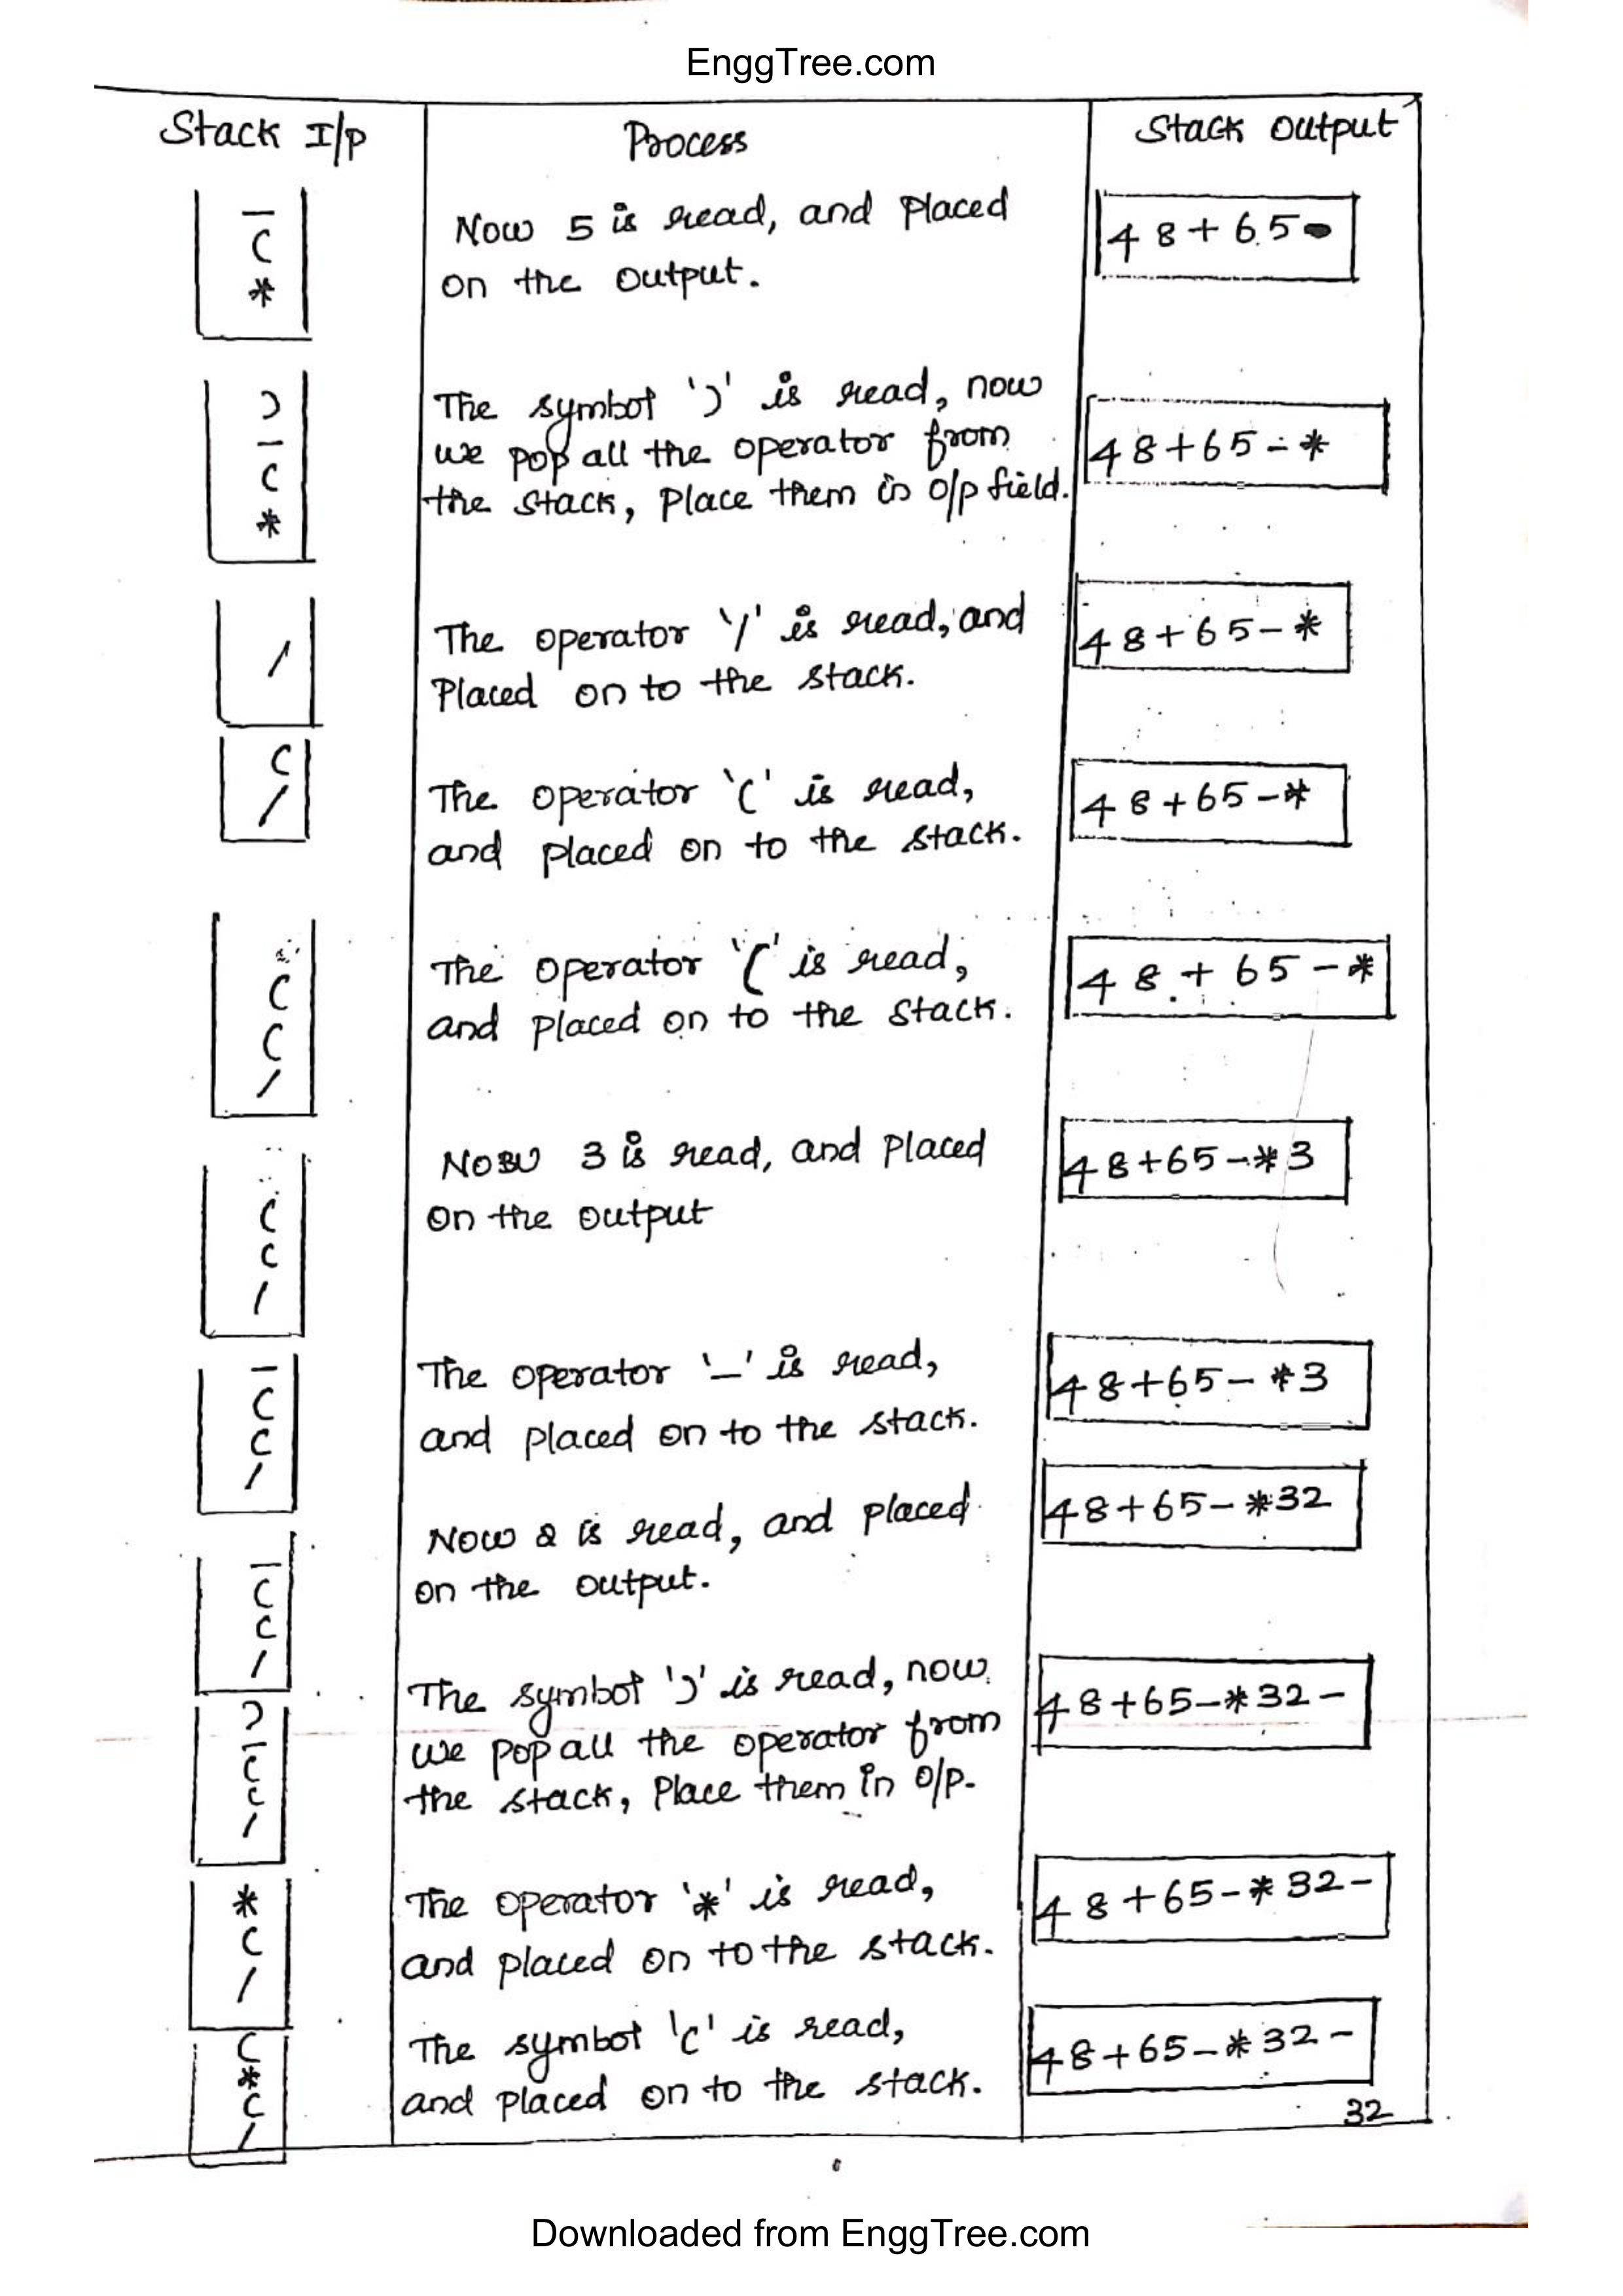 EnggTree.com
Stack I/P
Process
Stack Output
–
(
*
Now 5 is read, and placed
on the output.
4 8 + 6 5
)
–
(
*
The symbol ')' is read, now
we pop all the operator from
the stack, place them in o/p field.
4 8 + 6 5 – *
/
The operator '/' is read, and
placed on to the stack.
4 8 + 6 5 – *
(
/
The operator '(' is read,
and placed on to the stack.
4 8 + 6 5 – *
(
(
/
The operator '(' is read,
and placed on to the stack.
4 8 + 6 5 – *
(
(
/
Now 3 is read, and placed
on the output
4 8 + 6 5 – * 3
–
(
(
/
The operator '–' is read,
and placed on to the stack.
4 8 + 6 5 – * 3
–
(
(
/
Now 2 is read, and placed
on the output.
4 8 + 6 5 – * 3 2
)
–
(
(
/
The symbol ')' is read, now
we pop all the operator from
the stack, place them in o/p.
4 8 + 6 5 – * 3 2 –
*
(
/
The operator '*' is read,
and placed on to the stack.
4 8 + 6 5 – * 3 2 –
(
*
(
/
The symbol '(' is read,
and placed on to the stack.
4 8 + 6 5 – * 3 2 –
32
Downloaded from EnggTree.com